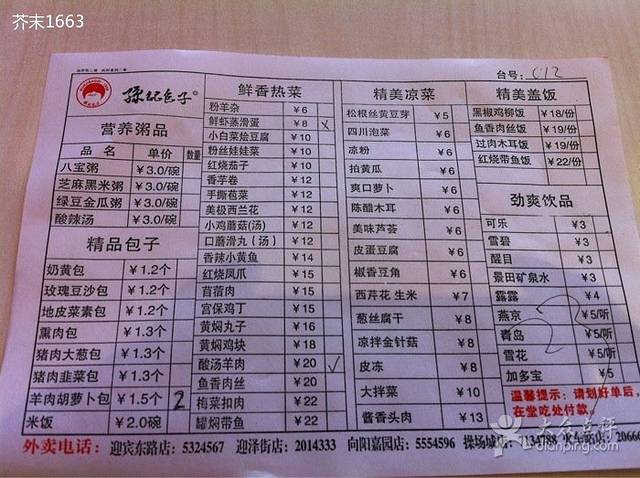 芥末1663
台号: C12
孫记包子
营养粥品
品 名 单价 数量
八宝粥 ¥3.0/碗
芝麻黑米粥 ¥3.0/碗
绿豆金瓜粥 ¥3.0/碗
酸辣汤 ¥3.0/碗
精品包子
奶黄包 ¥1.2个
玫瑰豆沙包 ¥1.2个
地皮菜素包 ¥1.2个
熏肉包 ¥1.3个
猪肉大葱包 ¥1.3个
猪肉韭菜包 ¥1.3个
羊肉胡萝卜包 ¥1.5个 2
米饭 ¥2.0碗
鲜香热菜
粉羊杂 ¥6
鲜虾蒸滑蛋 ¥8
小白菜烩豆腐 ¥10
粉丝娃娃菜 ¥10
红烧茄子 ¥10
香芋卷 ¥12
手撕苞菜 ¥12
美极西兰花 ¥12
小鸡蘑菇(汤) ¥12
口蘑滑丸(汤) ¥12
香辣小黄鱼 ¥14
红烧凤爪 ¥15
苜蓿肉 ¥15
宫保鸡丁 ¥15
黄焖丸子 ¥16
黄焖鸡块 ¥18
酸汤羊肉 ¥20 ✓
鱼香肉丝 ¥20
梅菜扣肉 ¥22
罐焖带鱼 ¥22
精美凉菜
松根丝黄豆芽 ¥5
四川泡菜 ¥6
凉粉 ¥6
拍黄瓜 ¥6
爽口萝卜 ¥6
陈醋木耳 ¥6
美味芦荟 ¥6
皮蛋豆腐 ¥6
椒香豆角 ¥6
西芹花 生米 ¥7
葱丝腐干 ¥8
凉拌金针菇 ¥8
皮冻 ¥8
大拌菜 ¥10
酱香头肉 ¥13
精美盖饭
黑椒鸡柳饭 ¥18/份
鱼香肉丝饭 ¥19/份
过肉木耳饭 ¥19/份
红烧带鱼饭 ¥22/份
劲爽饮品
可乐 ¥3
雪碧 ¥3
醒目 ¥3
景田矿泉水 ¥3
露露 ¥4
燕京 ¥5/听
青岛 ¥5/听
雪花 ¥5/听
加多宝 ¥5
温馨提示：请划好单后，
在堂吃处付款。
外卖电话：迎宾东路店：5324567 迎泽街店：2014333 向阳嘉园店：5554596 操场城店：7134788 火车站店：20666
大众点评
dianping.com